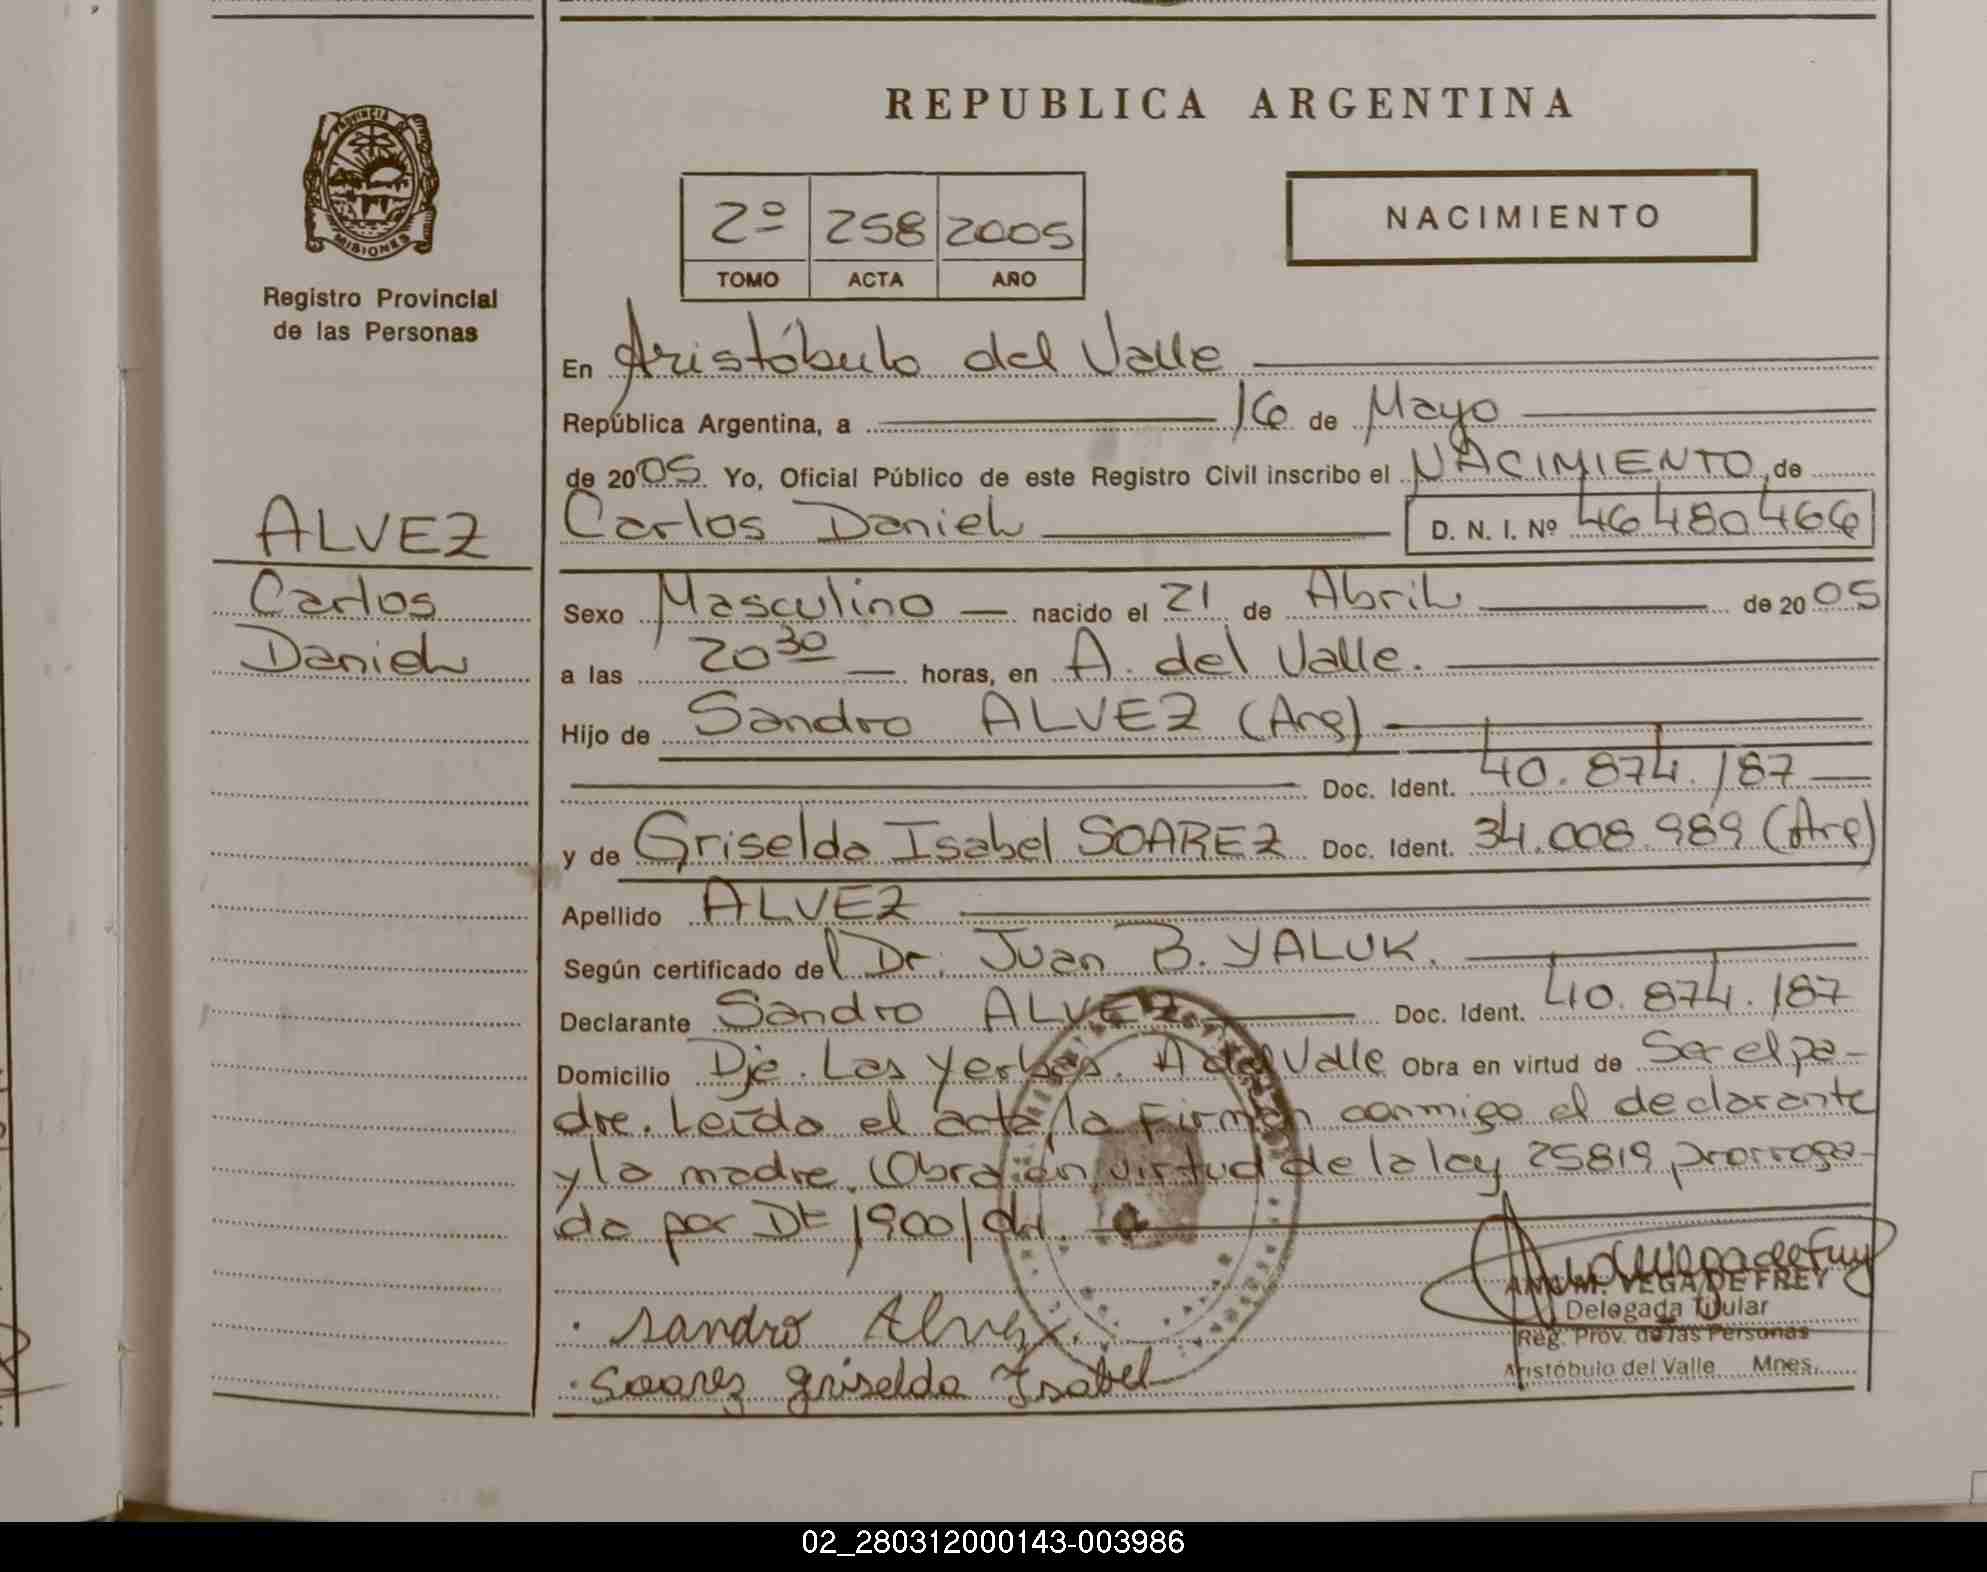 REPUBLICA ARGENTINA
PROVINCIA DE
MISIONES
Registro Provincial
de las Personas
2º 258 2005
TOMO ACTA AÑO
NACIMIENTO
En Aristóbulo del Valle
República Argentina, a 16 de Mayo
de 2005. Yo, Oficial Público de este Registro Civil inscribo el NACIMIENTO, de
Carlos Daniel D. N. I. Nº 46480466
ALVEZ
Carlos
Daniel
Sexo Masculino nacido el 21 de Abril de 2005
a las 20 30 horas, en A. del Valle.
Hijo de Sandro ALVEZ (Arg)
Doc. Ident. 40.874.187
y de Griselda Isabel SOAREZ Doc. Ident. 34.008.989 (Arg)
Apellido ALVEZ
Según certificado del Dr. Juan B. YALUK.
Declarante Sandro ALVEZ Doc. Ident. 40.874.187
Domicilio Pje. Las Yerbas. A del Valle Obra en virtud de Ser el pa-
dre. Leída el acta, la Firman conmigo el declarante
y la madre. Obra en virtud de la ley 25819 prorroga-
da por Dt 1900/04.
Sandro Alvez.
Soarez Griselda Isabel
ANA M. VEGA DE FREY
Delegada Titular
Reg. Prov. de las Personas
Aristóbulo del Valle Mnes.
02_280312000143-003986